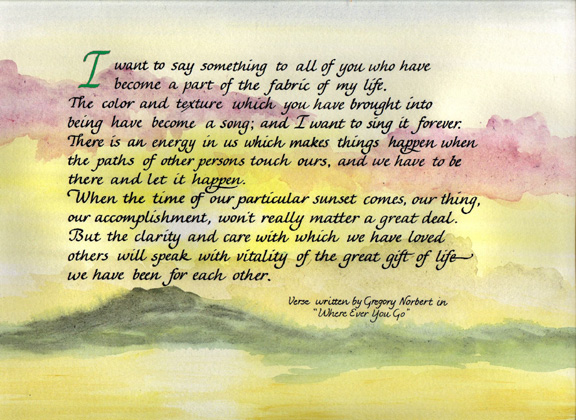 I want to say something to all of you who have
become a part of the fabric of my life.
The color and texture which you have brought into
being have become a song; and I want to sing it forever.
There is an energy in us which makes things happen when
the paths of other persons touch ours, and we have to be
there and let it happen.
When the time of our particular sunset comes, our thing,
our accomplishment, won't really matter a great deal.
But the clarity and care with which we have loved
others will speak with vitality of the great gift of life
we have been for each other.
Verse written by Gregory Norbert in
"Where Ever You Go"